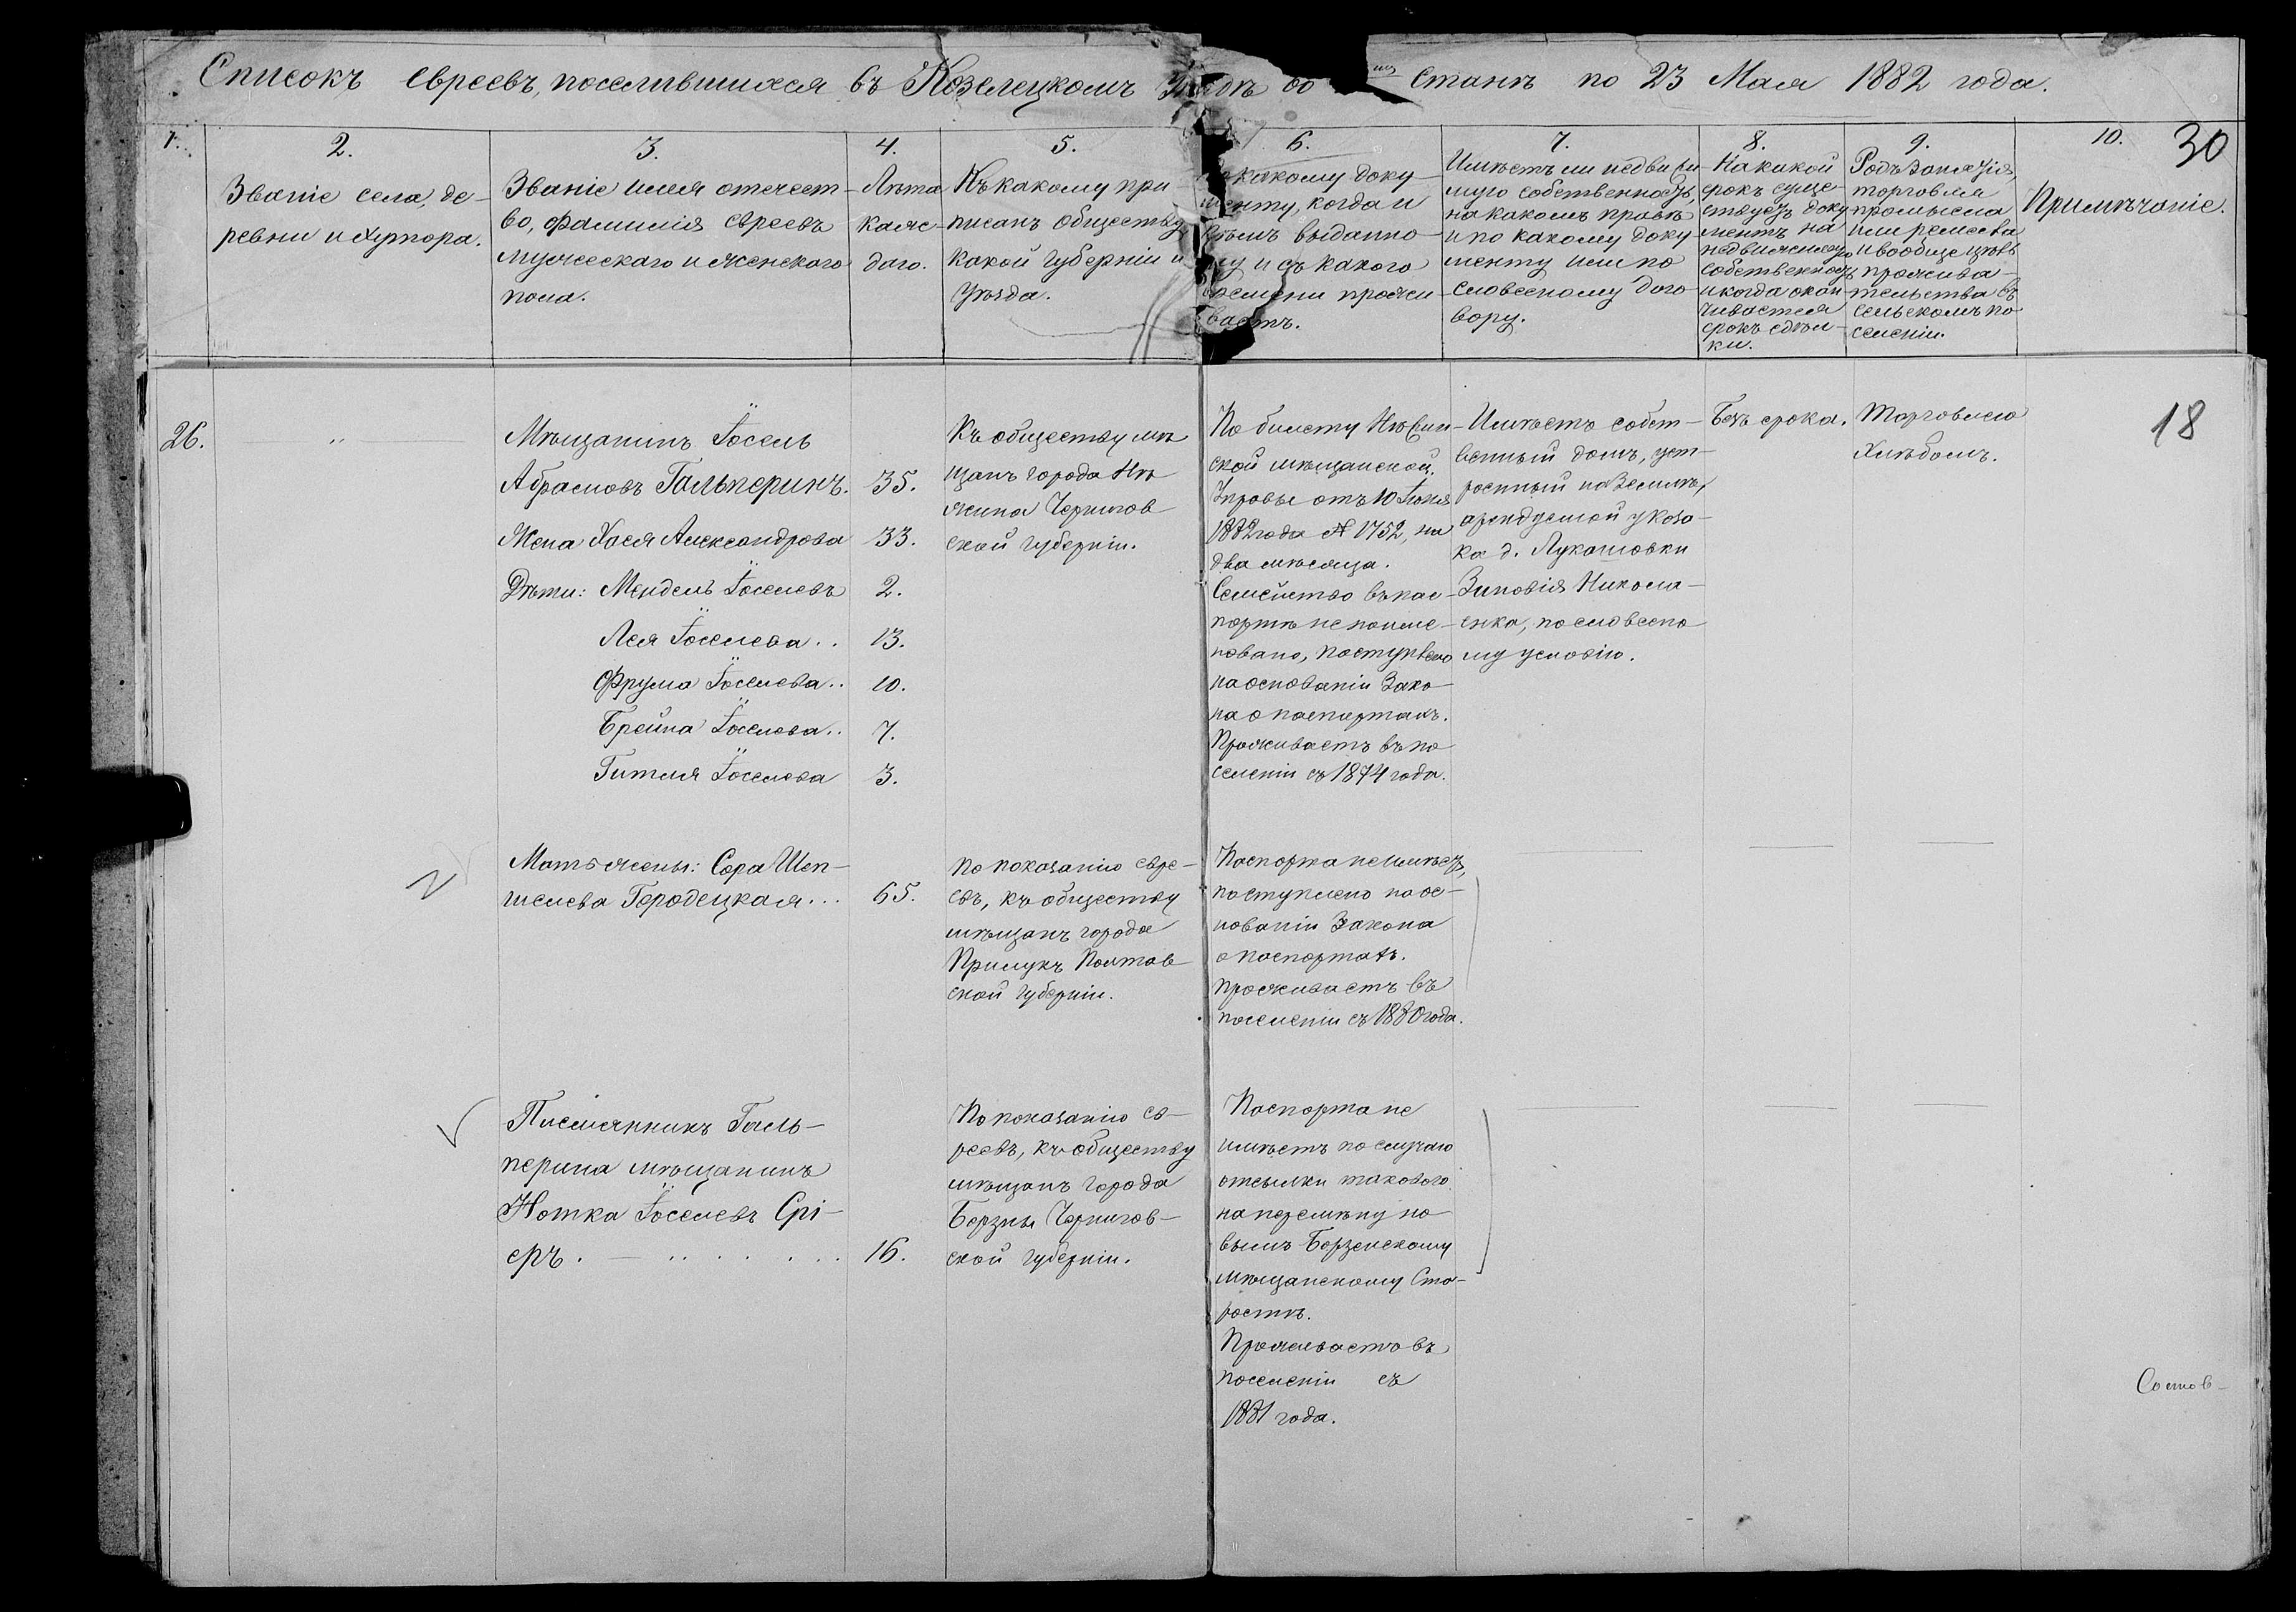 Списокъ евреевъ, поселившихся въ Козелецкомъ во Станѣ по 23 Мая 1882 года.
30
1.
2.
Званіе села, де-
ревни и хутора.
3.
Званіе имя отчест-
во, фамилія евреевъ
мужескаго и женскаго
пола.
4.
Лѣта
каж-
даго.
5.
Къ какому при
писанъ обществу
какой губерніи и
уѣзда.
6.
какому доку-
менту, когда и
кѣмъ выданно-
му и съ какого
времени прожи-
ваетъ.
7.
Имѣетъ ли недвижи
мую собственность,
на какомъ правѣ
и по какому доку
менту или по
словесному дого-
вору.
8.
На какой
срокъ суще-
ствуетъ доку
ментъ на
недвижимую
собственность
и когда окан-
чивается
срокъ сдѣл-
ки.
9.
Родъ занятія,
торговля
промысла
или ремесла
и вообще цѣль
прожива-
тельства въ
сельскомъ по
селеніи.
10.
Примѣчаніе.
18
26.
"
Мѣщанинъ Іосель
Абрамовъ Гальперинъ.
Жена Хася Александрова
Дѣти: Мендель Іоселевъ
Лея Іоселева..
Фрума Іоселева..
Брейна Іоселева..
Гитля Іоселева
35.
33.
2.
13.
10.
7.
3.
Къ обществу мѣ
щанъ города Нѣ
жина Чернигов
ской губерніи.
По билету Нѣжин-
ской мѣщанской
Управы отъ 10 Іюня
1882 года № 1752, на
два мѣсяца.
Семейство въ пас-
портѣ не поиме-
новано, поступлено
на основаніи Зако-
на о паспортахъ.
Проживаетъ въ по
селеніи съ 1874 года.
Имѣетъ собст-
венный домъ, уст-
роенный на землѣ,
арендуемой у коза-
ка д. Лукашовки
Зиновія Никола-
енка, по словесно
му условію.
Безъ срока.
Торговлею
хлѣбомъ.
Мать жены: Сора Шеп-
шелева Городецкая...
65.
По показанію евре-
евъ, къ обществу
мѣщанъ города
Прилукъ Полтав-
ской губерніи.
Паспорта не имѣетъ,
поступлено на ос-
нованіи Закона
о паспортахъ.
проживаетъ въ
поселеніи съ 1880 года.
Племянникъ Галь-
перина мѣщанинъ
Нотка Іоселевъ Срі-
еръ.
16.
По показанію ев-
реевъ, къ обществу
мѣщанъ города
Борзны Чернигов-
ской губерніи.
Паспорта не
имѣетъ по случаю
отсылки таковаго
на перемѣну но-
вымъ Борзенскому
мѣщанскому Ста-
ростѣ.
Проживаетъ въ
поселеніи съ
1881 года.
Состав-